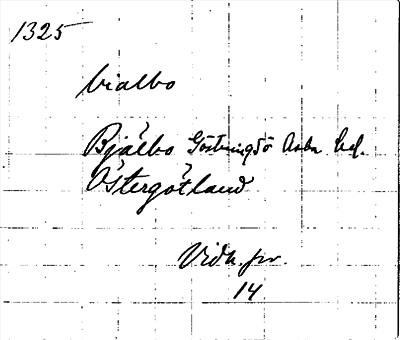 1325
bialbo
Bjälbo Göstrings o Aska hd.
Östergötland
Vidh. pr.
14